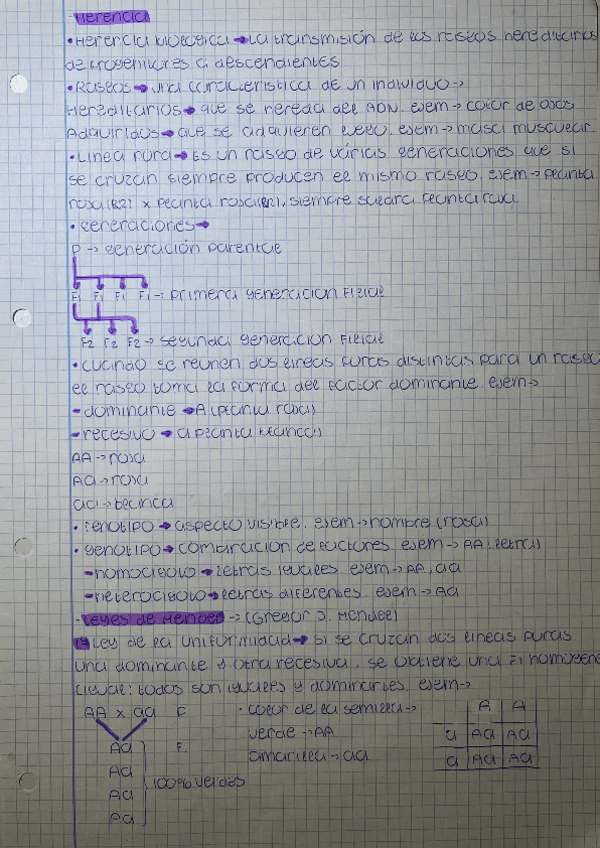 -HERENCIA
• Herencia biológica → La transmisión de los rasgos hereditarios
de progenitores a descendientes
• Rasgos → una característica de un individuo →
Hereditarios → que se hereda del ADN. ejem → color de ojos
Adquiridos → que se adquieren luego. ejem → masa muscular.
• Línea pura → Es un rasgo de várias generaciones que si
se cruzan siempre producen el mismo rasgo. ejem → planta
rosa(RR) x planta rosa(RR), siempre saldra planta rosa.
• generaciones →
P → generación parental
F1 F1 F1 F1 → primera generacion Filial
F2 F2 F2 → segunda generacion Filial
• cuando se reunen dos líneas puras distintas para un rasgo
el rasgo toma la forma del factor dominante. ejem →
- dominante → A (planta rosa)
- recesivo → a (planta blanca)
AA → rosa
Aa → rosa
aa → blanca
• Fenotipo → aspecto visible. ejem → nombre (rosa)
• genotipo → combinación de factores. ejem → AA (letra)
- homocigoto → letras iguales. ejem → AA, aa
- heterocigoto → letras diferentes. ejem → Aa
- Leyes de Mendel → (Gregor J. Mendel)
Ley de la uniformidad → si se cruzan dos líneas puras
una dominante y otra recesiva, se obtiene una F1
todos son iguales y dominantes. ejem →
AA x aa • color de la semilla → A A
Aa F1 verde → AA a Aa Aa
Aa amarilla → aa a Aa Aa
Aa 100% verdes
Aa